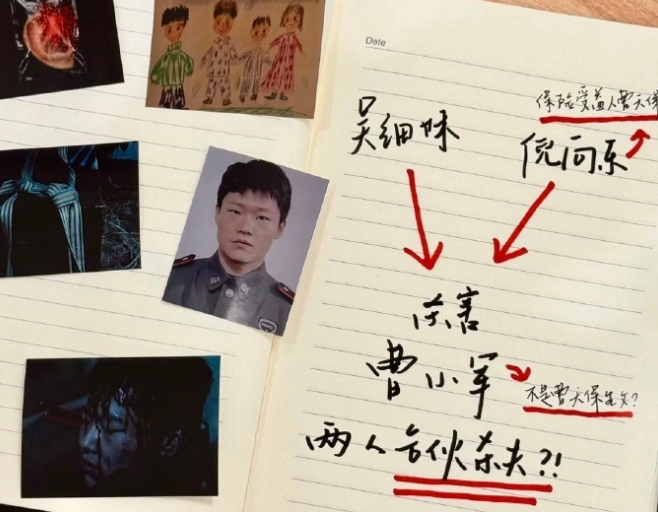 Date
保险受益人曹天保
吴细妹
倪向东
杀害
曹小军
不是曹天保生父?
两人合伙杀夫?!